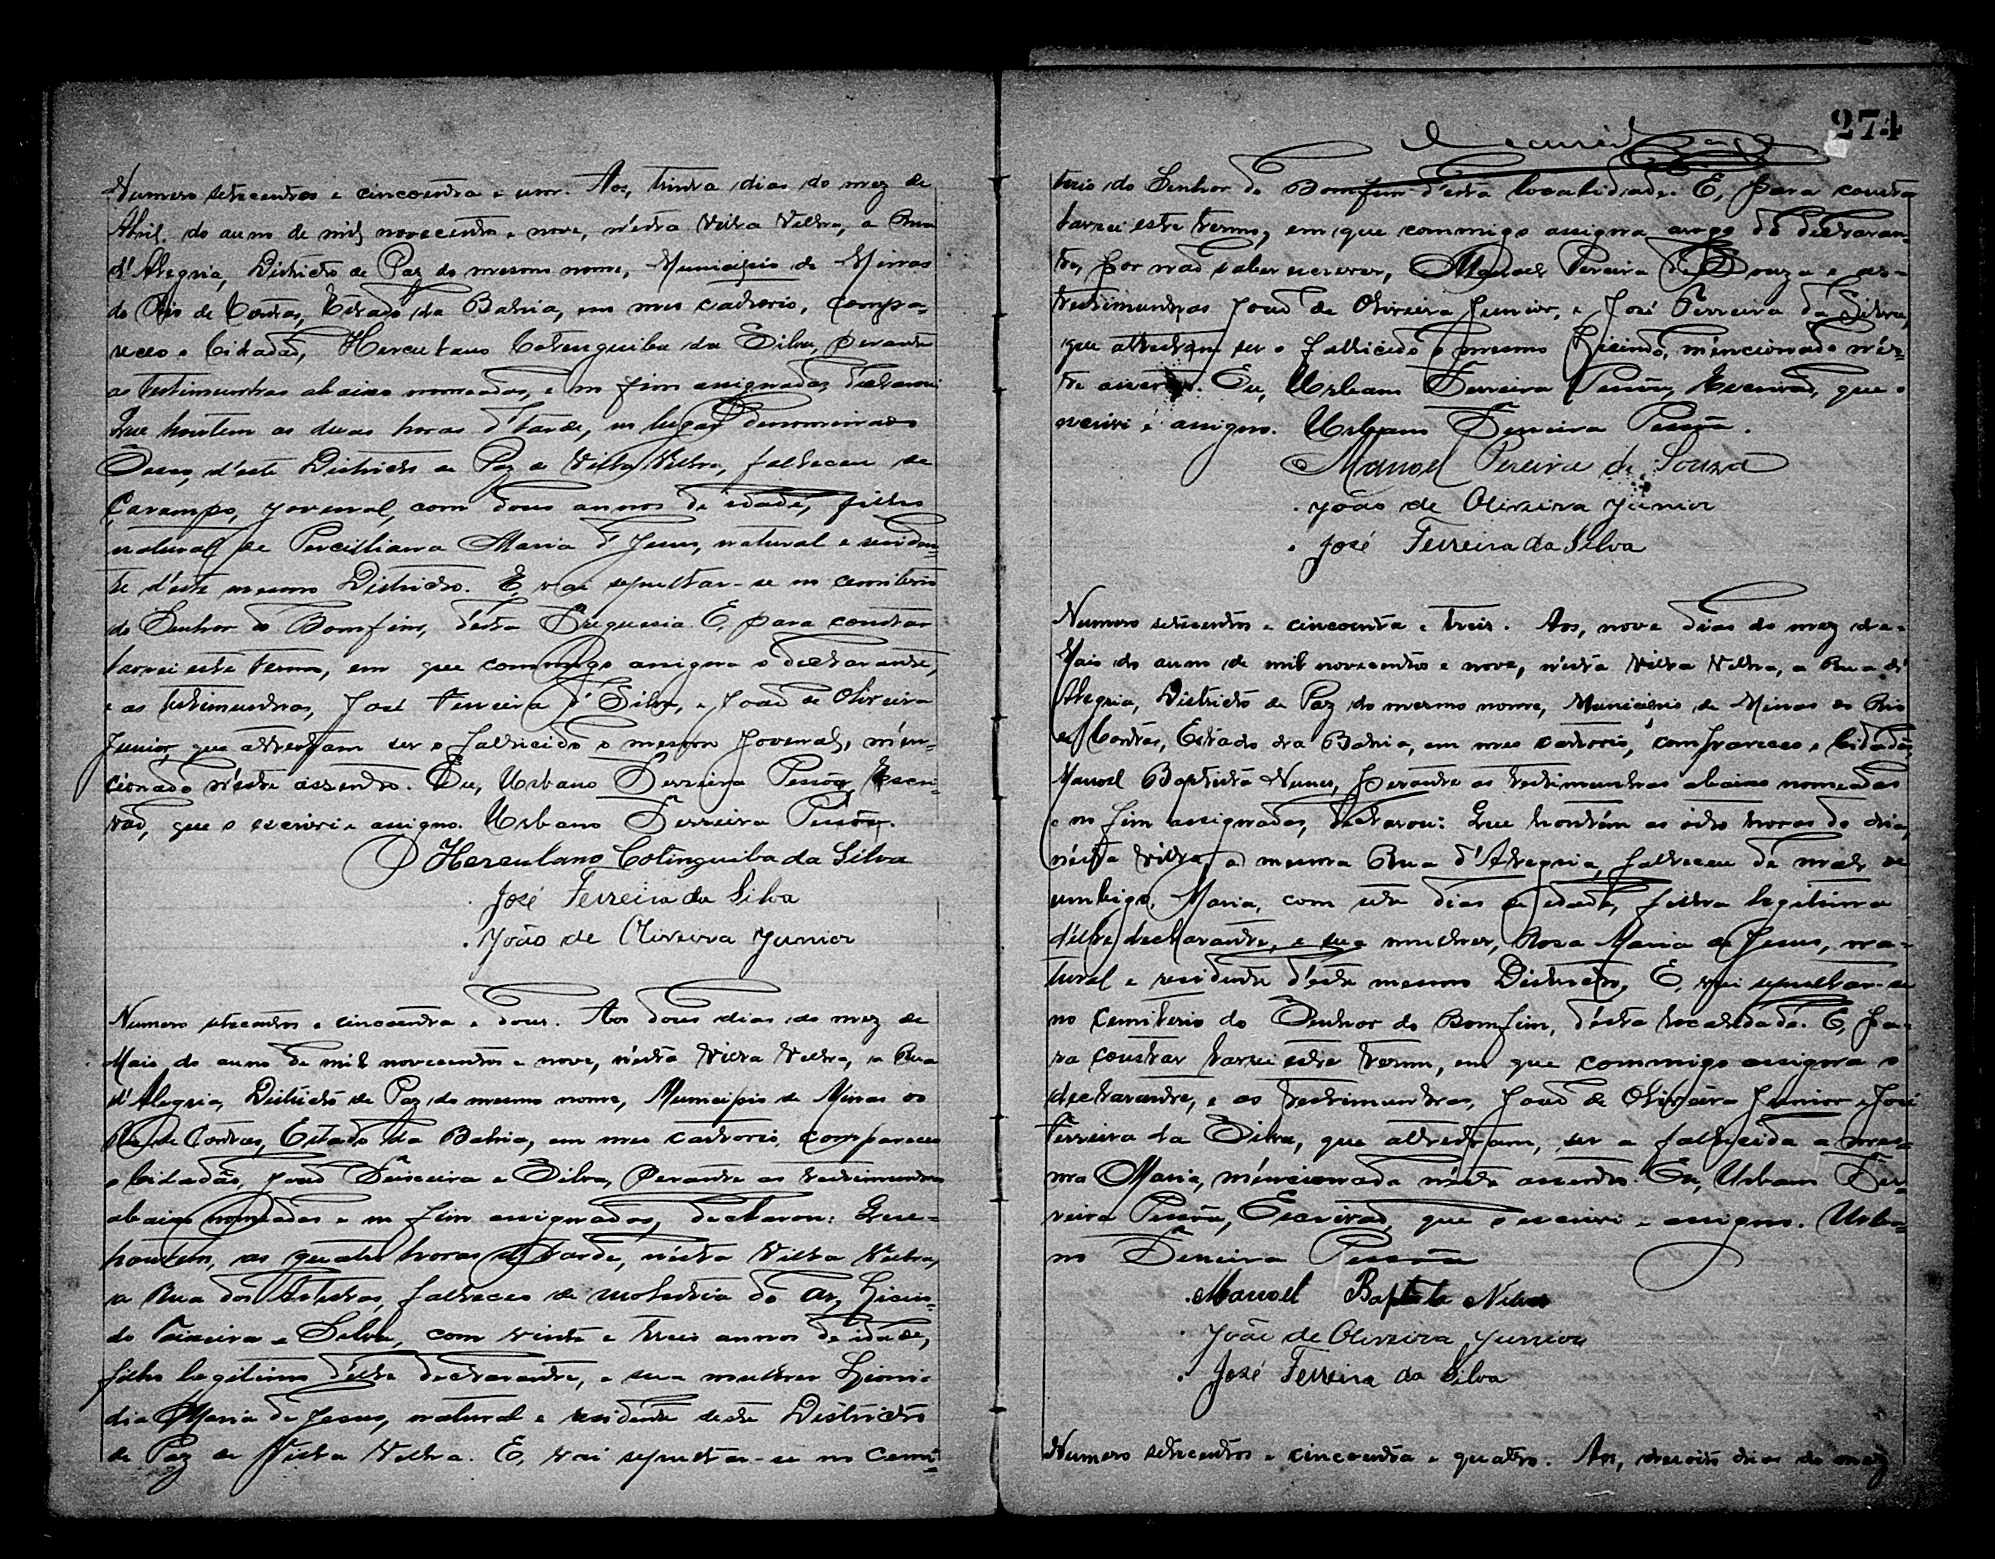 Numero setecentos e cincoenta e um. Aos, trinta dias do mez de
Abril do anno de mil novecentos e nove, n'esta Villa Velha, a Rua
d'Alegria, Districto de Paz do mesmo nome, Municipio de Minas
do Rio de Contas, Estado da Bahia, em meu cartorio, compa-
receo o Cidadaõ, Herculano Cotinguiba da Silva, perante
as testimunhas abaixo nomeadas, e no fim assignadas, declarou:
Que hontem as duas horas d'tarde, no lugar denominado
d'este Districto de Paz de Villa Velha, falleceu de
Carampo, Jovenal, com dous annos de idade, filho
natural de Perciliana Maria d'Jesus, natural e residen-
te d'este mesmo Districto. E, vai sepultar-se no cemiterio
do Senhor do Bomfim, d'esta Freguesia. E, para constar
lavrei este termo, em que commigo assigna o declarante,
e as testimunhas, José Ferreira d'Silva, e Joaõ de Oliveira
Junior, que attestam ser o fallecido o mesmo Jovenal, men-
cionado n'este assento. Eu, Urbano Ferreira Pessôa, Escri-
vaõ, que o escrivi e assigno. Urbano Ferreira Pessôa.
Herculano Cotinguiba da Silva
José Ferreira da Silva
João de Oliveira Junior
Numero setecentos e cincoenta e dous. Aos dous dias do mez de
Maio do anno de mil novecentos e nove, n'esta Villa Velha, a Rua
d'Alegria, Districto de Paz do mesmo nome, Municipio de Minas do
Rio de Contas, Estado da Bahia, em meu cartorio, compareceo
o Cidadão, Joaõ Teixeira e Silva, perante as testimunhas
abaixo nomeadas e no fim assignadas, declarou: Que
hontem, as quatro horas d'tarde, n'esta Villa Velha,
a Rua dos falleceo de molestia do Ar, Licin-
do Teixeira e Silva, com vinte e treis annos de idade,
filho legitimo d'elle declarante, e sua mulher Leoni-
dia Maria de Jesus, natural e residente deste Districto
de Paz de Villa Velha. E, vai sepultar-se no Cemi-
274
terio do Senhor do Bomfim d'esta localidade. E, para constar
lavrei este termo, em que commigo assigna arogo do declaran-
te, por naõ saber escrever, Manoel Pereira de Souza e as
testimunhas Joaõ de Oliveira Junior, e José Ferreira da Silva,
que attestam ser o fallecido o mesmo Licindo, mencionado n'es-
te assento. Eu, Urbano Ferreira Pessôa, Escrivaõ, que o
escrivi e assigno. Urbano Ferreira Pessôa.
Manoel Pereira de Souza
João de Oliveira Junior
José Ferreira da Silva
Numero setecentos e cincoenta e treis. Aos, nove dias do mez de
Maio do anno de mil novecentos e nove, n'esta Villa Velha, a Rua d'
Alegria, Districto de Paz do mesmo nome, Municipio de Minas do Rio
de Contas, Estado da Bahia, em meu cartorio, compareceo o Cidadaõ,
Manoel Baptista Nunes, perante as testimunhas abaixo nomeadas
e no fim assignadas, declarou: Que hontem as oito horas do dia,
n'esta Villa, a mesma Rua d'Alegria, falleceu de mal de
umbigo, Maria, com sete dias de idade, filha legitima
d'elle declarante, e sua mulher, Rosa Maria de Jesus, na-
tural e residente d'este mesmo Districto. E, vai sepultar-se
no Cemiterio do Senhor do Bomfim, d'esta localidade. E, pa-
ra constar lavrei este termo, em que commigo assigna o
declarante, e as testimunhas, Joaõ de Oliveira Junior e José
Ferreira da Silva, que attestam, ser a fallecida a mes-
ma Maria, mencionada n'este assento. Eu, Urbano Fer-
reira Pessôa, Escrivaõ, que o escrivi e assigno. Urba-
no Ferreira Pessôa
Manoel Baptista Nunes
João de Oliveira Junior
José Ferreira da Silva
Numero setecentos e cincoenta e quatro. Aos, desoito dias do mez